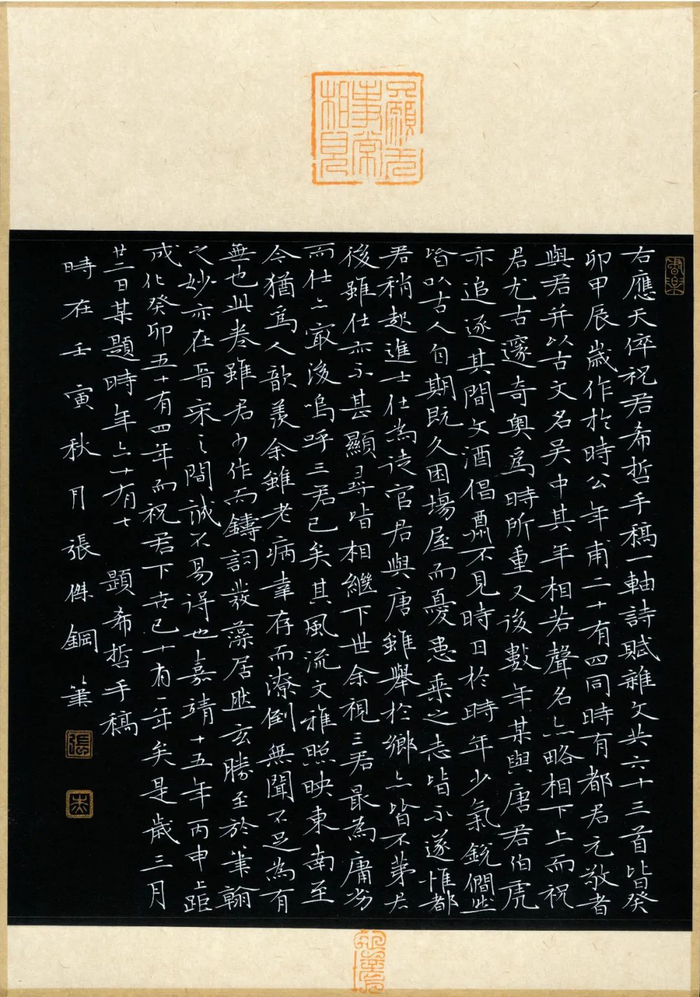 右應天倅祝君希哲手稿一軸詩賦雜文共六十三首皆癸
卯甲辰歲作於時公年甫二十有四同時有都君元敬者
與君并以古文名吳中其年相若聲名亦略相下上而祝
君尤古邃奇奧為時所重又後數年某與唐君伯虎
亦追逐其間文酒倡酬不見時日於時年少氣銳僴然
皆以古人自期既久困場屋而憂患乘之志皆不遂惟都
君稍起進士仕為徒官君與唐雖舉於鄉亦皆不第君
後雖仕亦不甚顯尋皆相繼下世余視三君最為庸劣
而仕亦最後嗚呼三君已矣其風流文雅照映東南至
今猶為人歆羨余雖老病幸存而潦倒無聞不足為有
無也此卷雖君少作而鑄詞發藻居然玄勝至於筆翰
之妙亦在晉宋之間誠不易得也嘉靖十五年丙申上距
成化癸卯五十有四年而祝君下世已十有一年矣是歲三月
廿一日某題時年六十有七 題希哲手稿
時在壬寅秋月張傑鋼筆
張